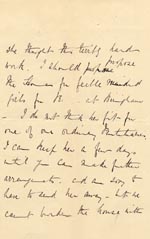 she thought this terribly hard
work. I should propose
the Home for feeble minded
girls for B. at
I do not think he fit for
one of our ordinary
I can keep her a few days
until you can make further
arrangements, and am sorry to
have to send her away, but we
cannot burden the house with